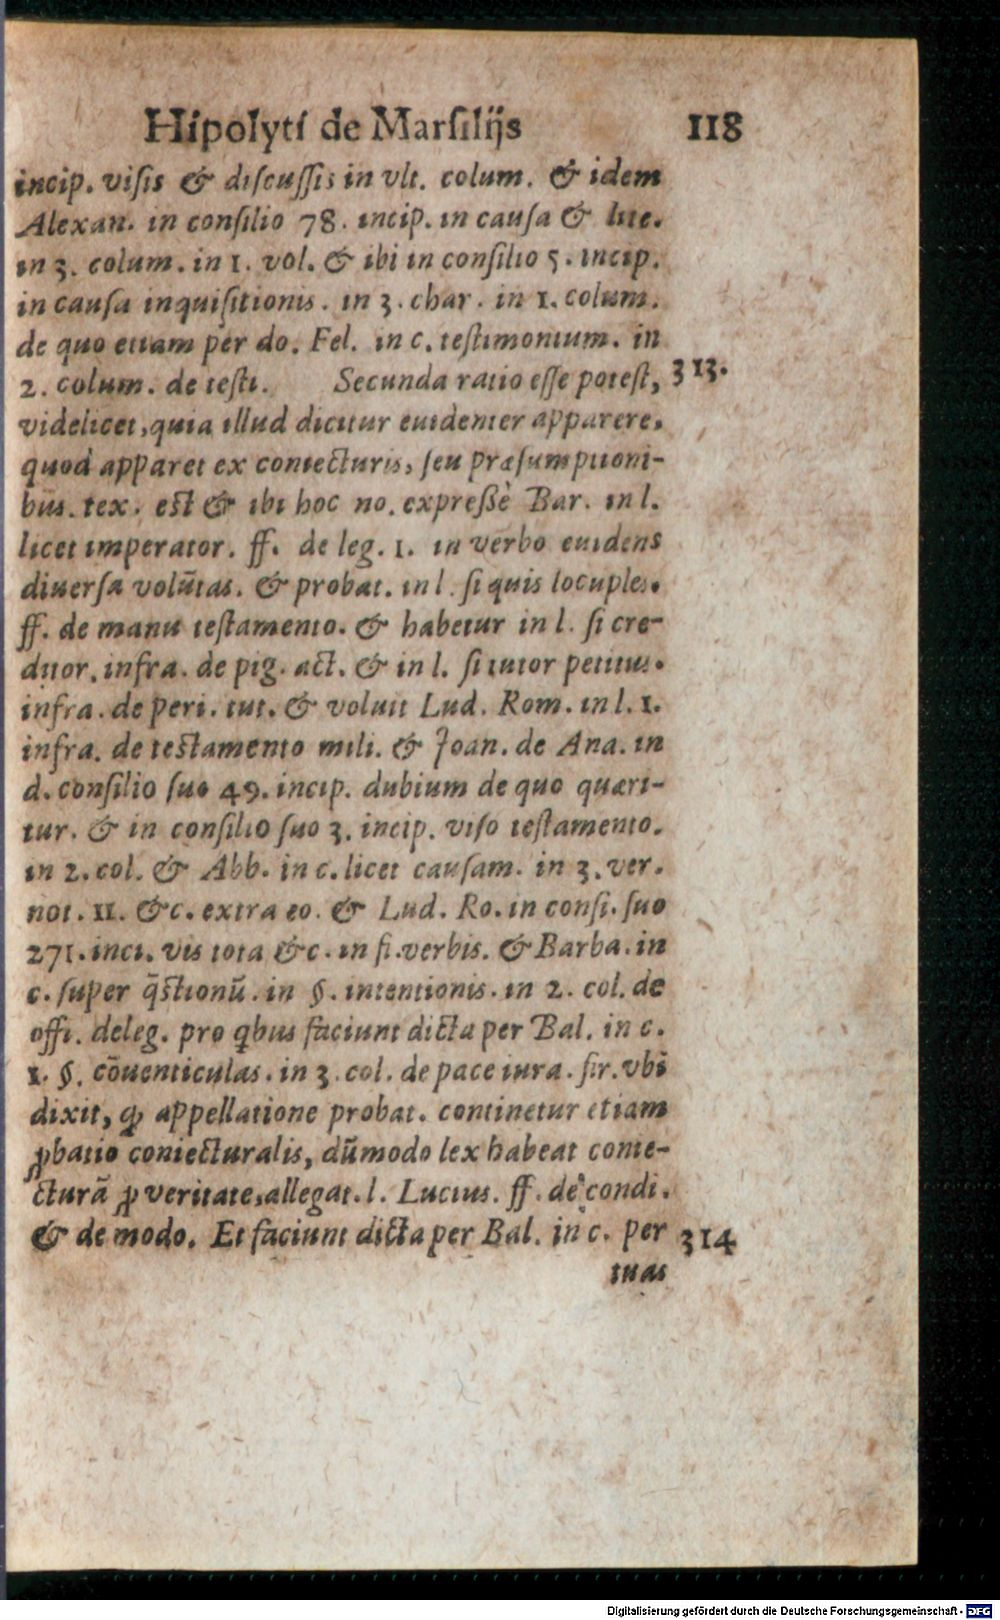 Hipolyti de Marſilijs 118
incip. viſis & diſcuſſis in vlt. colum. & idem
Alexan. in conſilio 78. incip. in cauſa & lite.
in 3. colum. in 1. vol. & ibi in conſilio 5. incip.
in cauſa inquiſitionis. in 3. char. in 1. colum.
de quo etiam per do. Fel. in c. teſtimonium. in
2. colum. de teſti. Secunda ratio eſſe poteſt, 313.
videlicet, quia illud dicitur euidenter apparere,
quod apparet ex coniecturis, ſeu præſumptioni-
bus. tex. eſt & ibi hoc no. expreſsè Bar. in l.
licet imperator. ff. de leg. 1. in verbo euidens
diuerſa volūtas. & probat. in l. ſi quis locuples.
ff. de manu teſtamento. & habetur in l. ſi cre-
ditor. infra. de pig. act. & in l. ſi tutor petitus.
infra. de peri. tut. & voluit Lud. Rom. in l. 1.
infra. de teſtamento mili. & Joan. de Ana. in
d. conſilio ſuo 49. incip. dubium de quo quæri-
tur. & in conſilio ſuo 3. incip. viſo teſtamento.
in 2. col. & Abb. in c. licet cauſam. in 3. ver.
not. 11. &c. extra eo. & Lud. Ro. in conſi. ſuo
271. inci. vis tota &c. in fi. verbis. & Barba. in
c. ſuper q̄ſtionū. in §. intentionis. in 2. col. de
offi. deleg. pro qbus faciunt dicta per Bal. in c.
1. §. cōuenticulas. in 3. col. de pace iura. fir. vbi
dixit, ꝙ appellatione probat. continetur etiam
ꝓbatio coniecturalis, dūmodo lex habeat conie-
cturā ꝓ veritate, allegat. l. Lucius. ff. de condi.
& de modo. Et faciunt dicta per Bal. in c. per 314
tuas
Digitalisierung gefördert durch die Deutsche Forschungsgemeinschaft - DFG